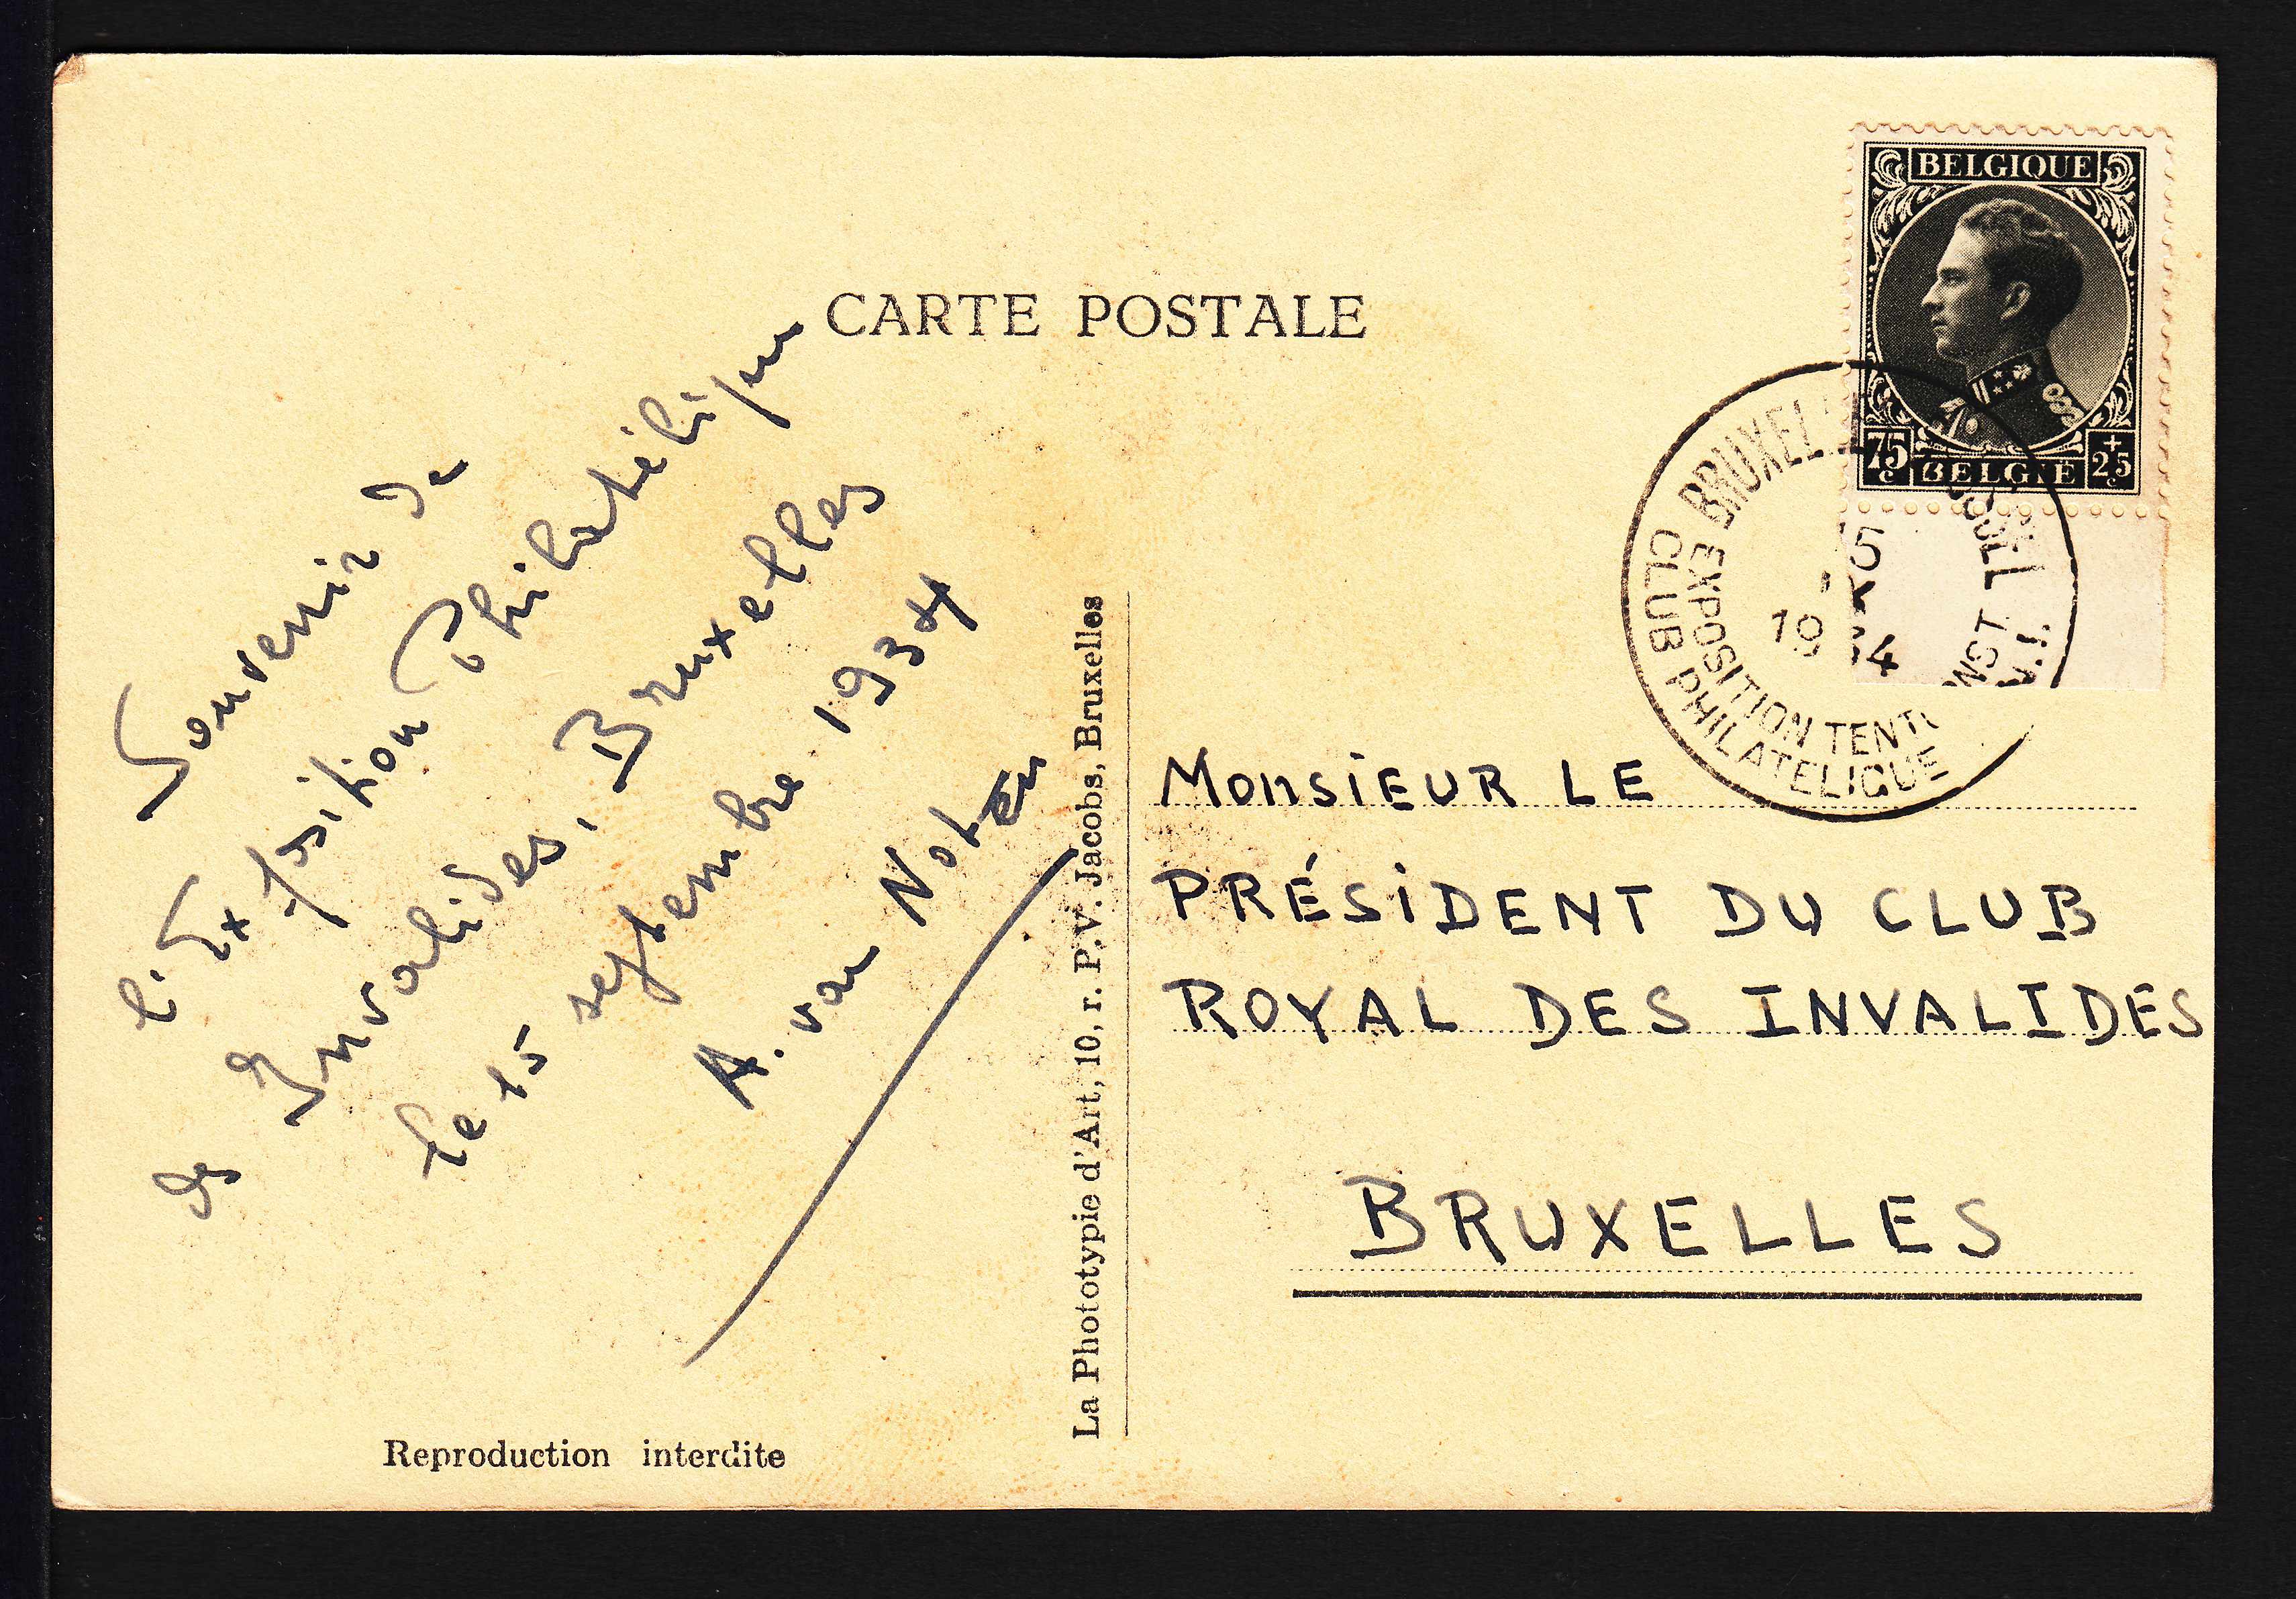 CARTE POSTALE
BELGIQUE
75 c
+ 25 c
BELGIË
BRUXEL
BRUSSEL
EXPOSITION TENT
CLUB PHILATELIQUE
15
19 34
Souvenir de
l'Exposition Philatélique
des Invalides, Bruxelles
le 15 septembre 1934
A. van Noten
La Phototypie d'Art, 10, r. P.V. Jacobs, Bruxelles
MONSIEUR LE
PRÉSIDENT DU CLUB
ROYAL DES INVALIDES
BRUXELLES
Reproduction interdite